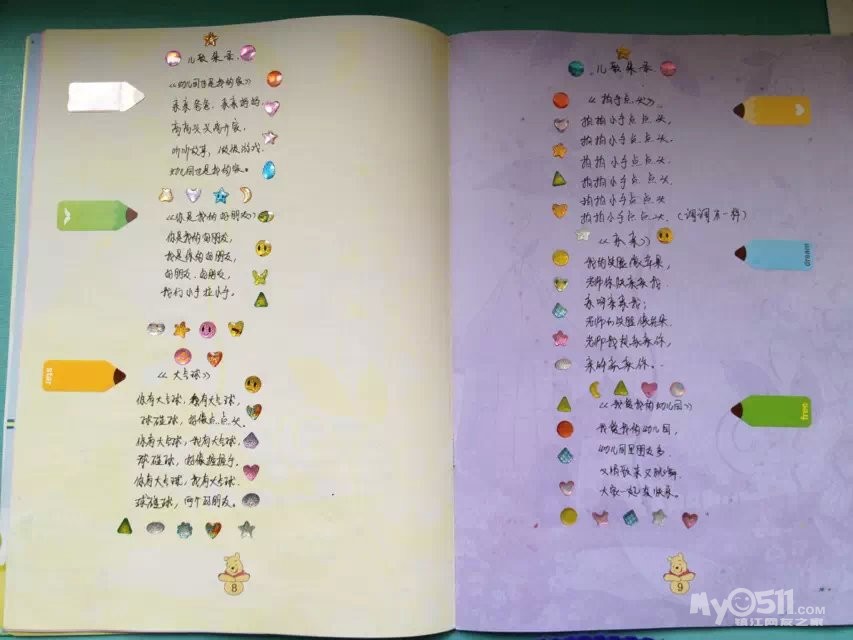 儿歌集录
《幼儿园也是我的家》
亲亲爸爸，亲亲妈妈
高高兴兴离开家
听听故事，做做游戏
幼儿园也是我的家。
《你是我的好朋友》
你是我的好朋友，
我是你的好朋友，
好朋友，好朋友，
我们小手拉小手。
《大气球》
你有大气球，我有大气球，
球碰球，好像点点头。
你有大气球，我有大气球，
球碰球，好像握握手。
你有大气球，我有大气球，
球碰球，两个好朋友。
8
儿歌集录
《拍手点头》
拍拍小手点点头，
拍拍小手点点头，
拍拍小手点点头，
拍拍小手点点头，
拍拍小手点点头
拍拍小手点点头。
《亲亲》
我的脸蛋像苹果，
老师你快亲亲我
亲呀亲亲我；
老师的脸蛋像花朵
老师我快亲亲你，
亲呀亲亲你。
《我爱我的幼儿园》
我爱我的幼儿园，
幼儿园里朋友多
又唱歌来又跳舞
大家一起真快乐。
9
star
dream
free
My0511.COM
镇江网友之家